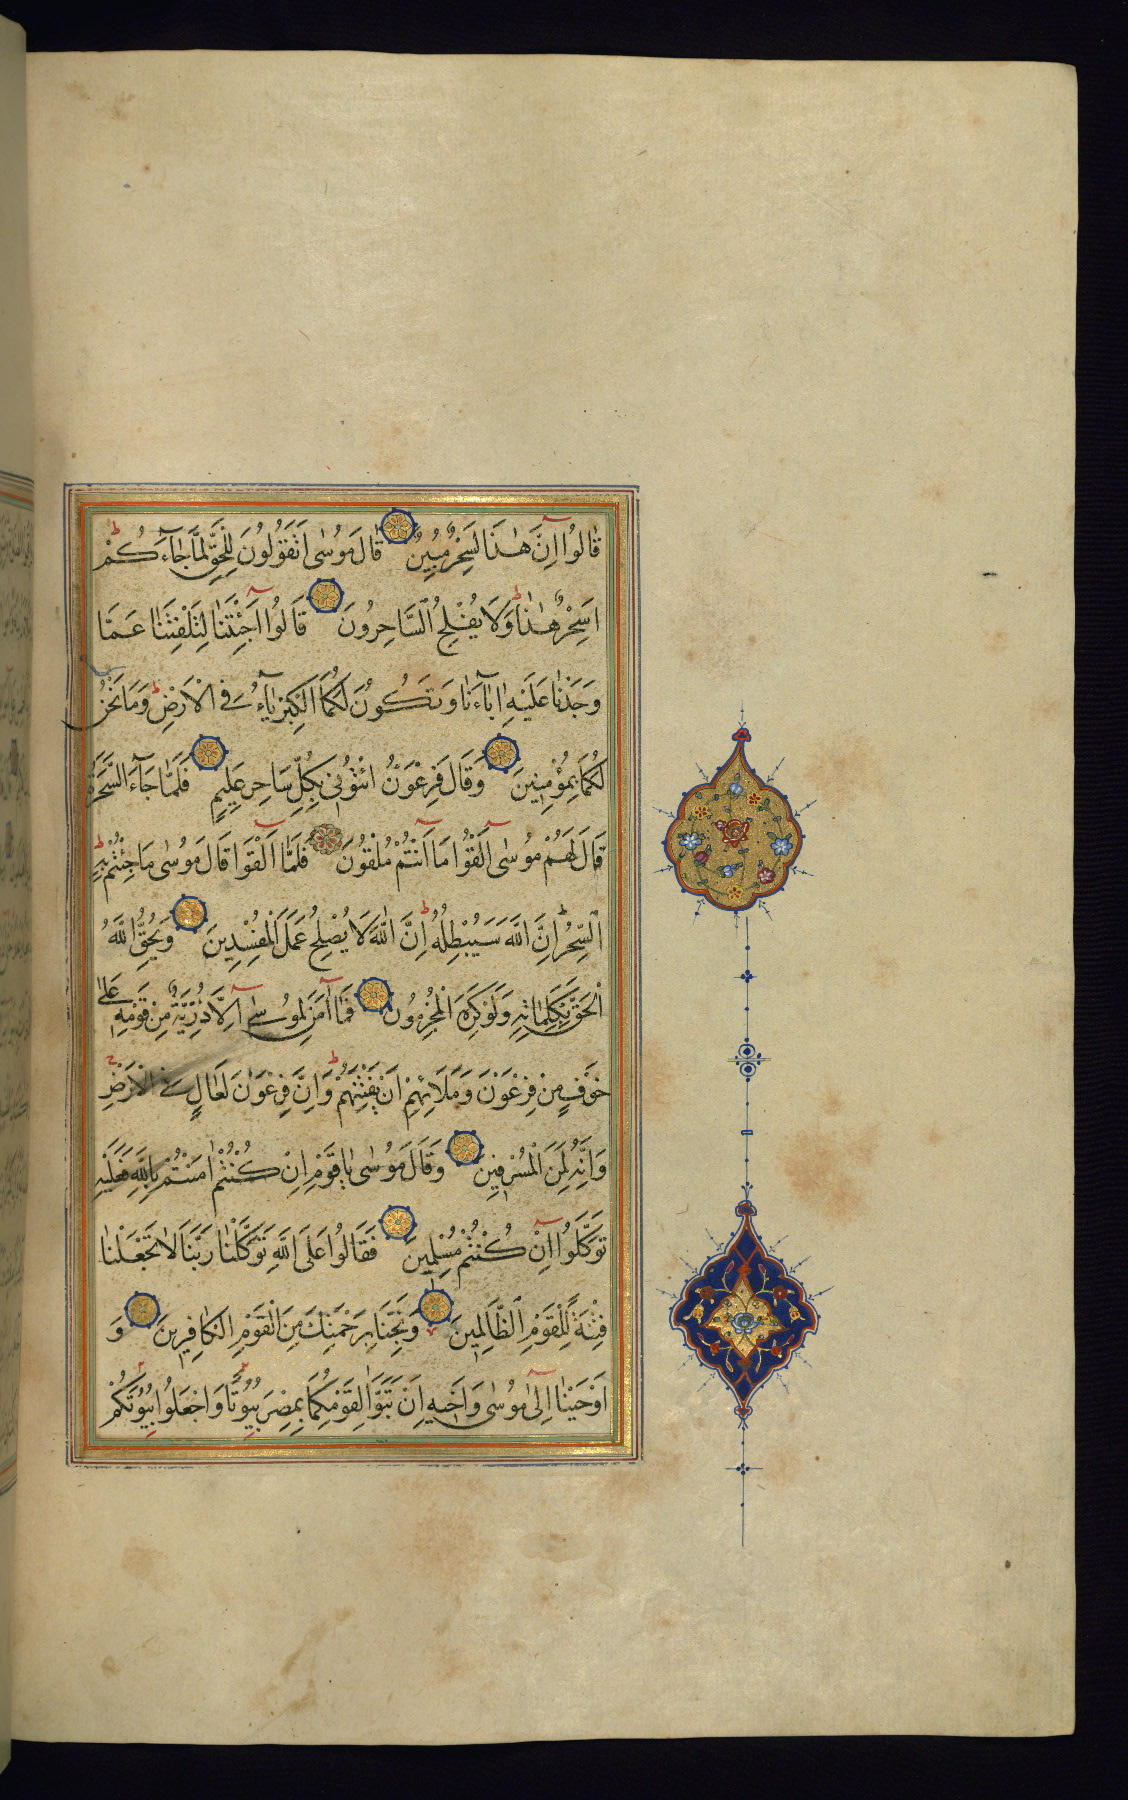 قَالُوا اِنَّ هٰذَا لَسِحْرٌ مُبِينٌ قَالَ مُوسٰى اَتَقُولُونَ لِلْحَقِّ لَمَّا جَآءَكُمْ
اَسِحْرٌ هٰذَا وَلَا يُفْلِحُ السَّاحِرُونَ قَالُوا اَجِئْتَنَا لِتَلْفِتَنَا عَمَّا
وَجَدْنَا عَلَيْهِ اٰبَآءَنَا وَتَكُونَ لَكُمَا الْكِبْرِيَآءُ فِي الْاَرْضِ وَمَا نَحْنُ
لَكُمَا بِمُؤْمِنِينَ وَقَالَ فِرْعَوْنُ ائْتُونِي بِكُلِّ سَاحِرٍ عَلِيمٍ فَلَمَّا جَآءَ السَّحَرَةُ
قَالَ لَهُمْ مُوسٰى اَلْقُوا مَا اَنْتُمْ مُلْقُونَ فَلَمَّا اَلْقَوْا قَالَ مُوسٰى مَا جِئْتُمْ بِهِ
السِّحْرُ اِنَّ اللّٰهَ سَيُبْطِلُهُ اِنَّ اللّٰهَ لَا يُصْلِحُ عَمَلَ الْمُفْسِدِينَ وَيُحِقُّ اللّٰهُ
الْحَقَّ بِكَلِمَاتِهِ وَلَوْ كَرِهَ الْمُجْرِمُونَ فَمَا اٰمَنَ لِمُوسٰى اِلَّا ذُرِّيَّةٌ مِنْ قَوْمِهِ عَلٰى
خَوْفٍ مِنْ فِرْعَوْنَ وَمَلَائِهِمْ اَنْ يَفْتِنَهُمْ وَاِنَّ فِرْعَوْنَ لَعَالٍ فِي الْاَرْضِ
وَاِنَّهُ لَمِنَ الْمُسْرِفِينَ وَقَالَ مُوسٰى يَا قَوْمِ اِنْ كُنْتُمْ اٰمَنْتُمْ بِاللّٰهِ فَعَلَيْهِ
تَوَكَّلُوا اِنْ كُنْتُمْ مُسْلِمِينَ فَقَالُوا عَلَى اللّٰهِ تَوَكَّلْنَا رَبَّنَا لَا تَجْعَلْنَا
فِتْنَةً لِلْقَوْمِ الظَّالِمِينَ وَنَجِّنَا بِرَحْمَتِكَ مِنَ الْقَوْمِ الْكَافِرِينَ وَ
اَوْحَيْنَا اِلٰى مُوسٰى وَاَخِيهِ اَنْ تَبَوَّاٰ لِقَوْمِكُمَا بِمِصْرَ بُيُوتًا وَاجْعَلُوا بُيُوتَكُمْ